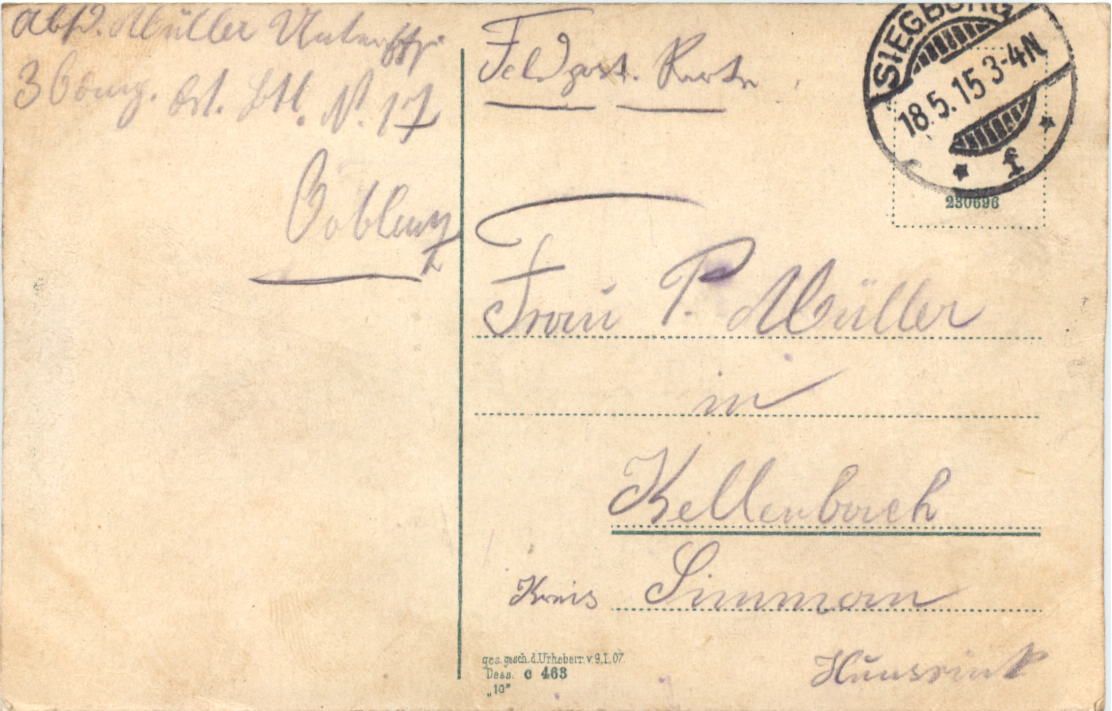 Abs. Müller Unteroffz.
3 Comp. Ers. Btl. N. 17
Coblenz
Feldpost. Karte
SIEGBURG
18.5.15 3-4N
* f *
230696
Frau P. Müller
in
Kellenbach
Kreis Simmern
Hunsrück
ges. gesch. d. Urheberr. v. 9.I.07
Dess. c 463
„10"